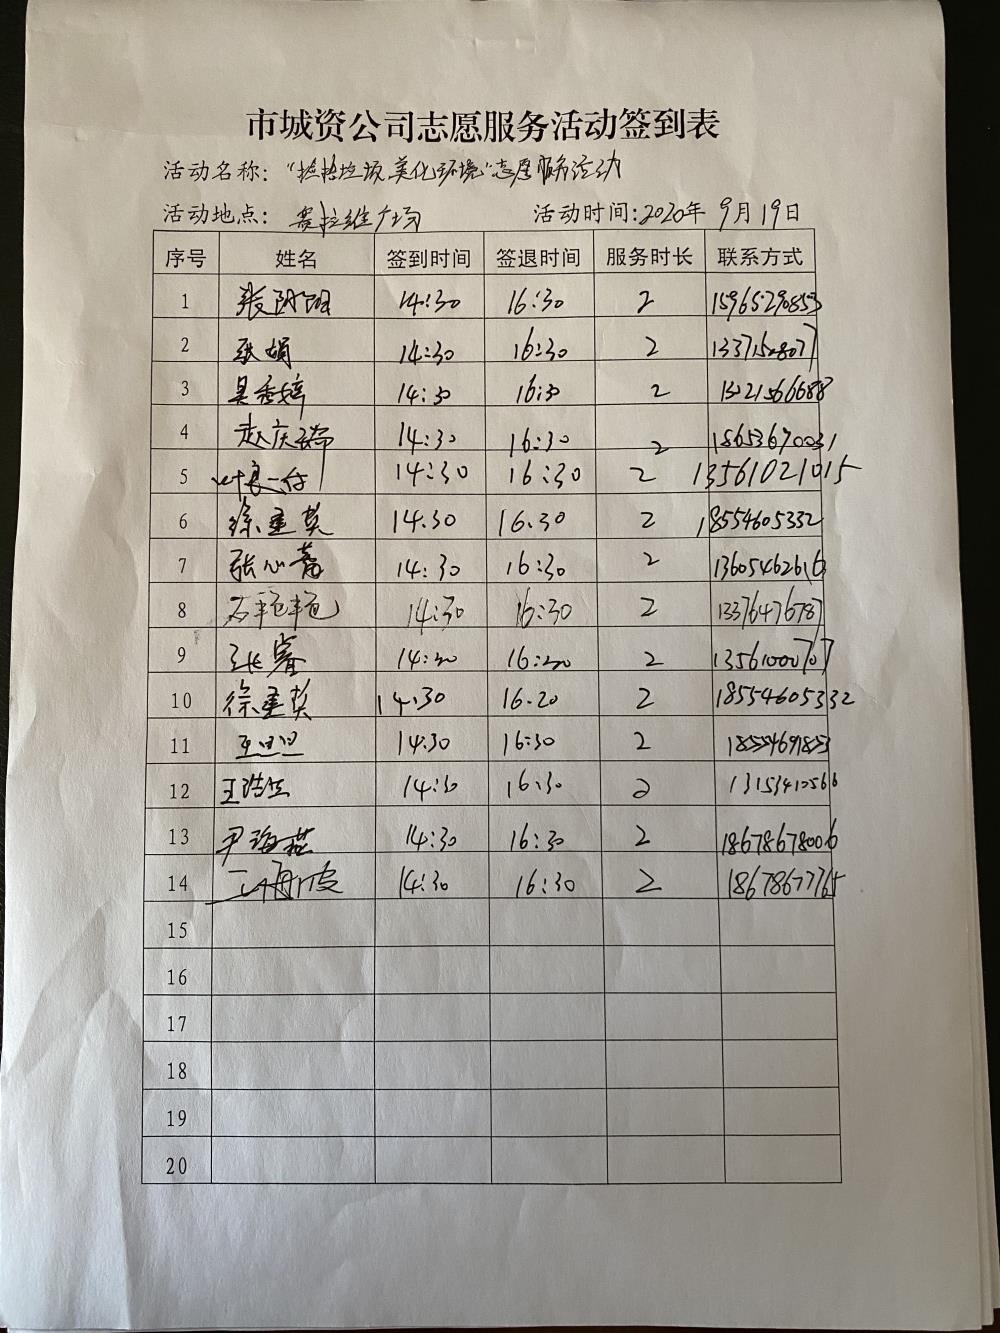 市城资公司志愿服务活动签到表
活动名称："捡拾垃圾 美化环境"志愿服务活动
活动地点：赛拉维广场 活动时间:2020年9月19日
序号 姓名 签到时间 签退时间 服务时长 联系方式
1 14:30 16:30 2 15965290853
2 张娟 14:30 16:30 2
3 吴秀婷 14:30 16:30 2
4 赵庆瑞 14:30 16:30 2 18653690031
5 14:30 16:30 2 13561021015
6 徐重英 14.30 16.30 2 18554605332
7 张心 14:30 16:30 2 13605462616
8 石艳艳 14:30 16:30 2 13376476787
9 张睿 14:30 16:30 2 13561000707
10 徐重英 14.30 16.20 2 18554605332
11 14:30 16:30 2 18554691853
12 王浩 14:30 16:30 2
13 尹海燕 14:30 16:30 2 18678678006
14 王海波 14:30 16:30 2 18678677765
15
16
17
18
19
20